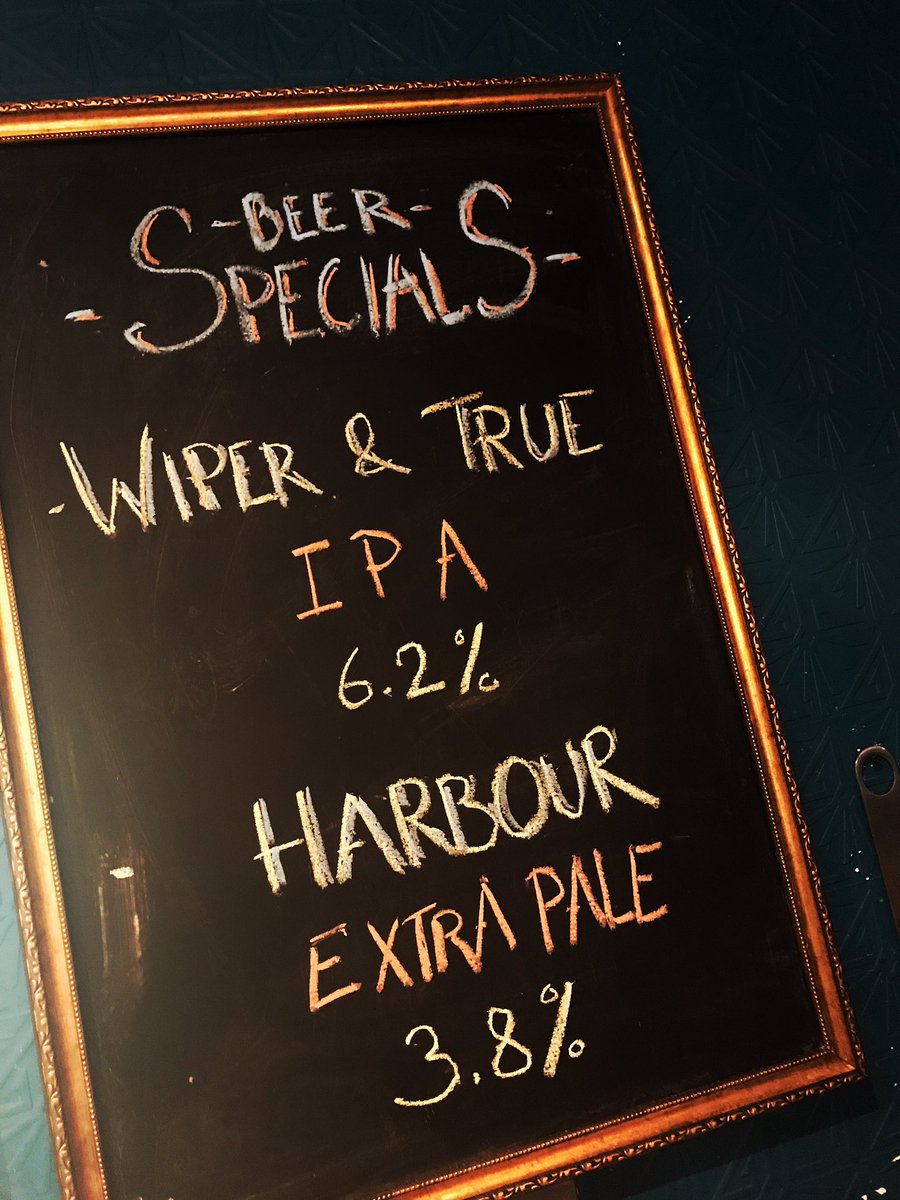 -BEER-
-SPECIALS-
-WIPER & TRUE
IPA
6.2%
HARBOUR
EXTRA PALE
3.8%